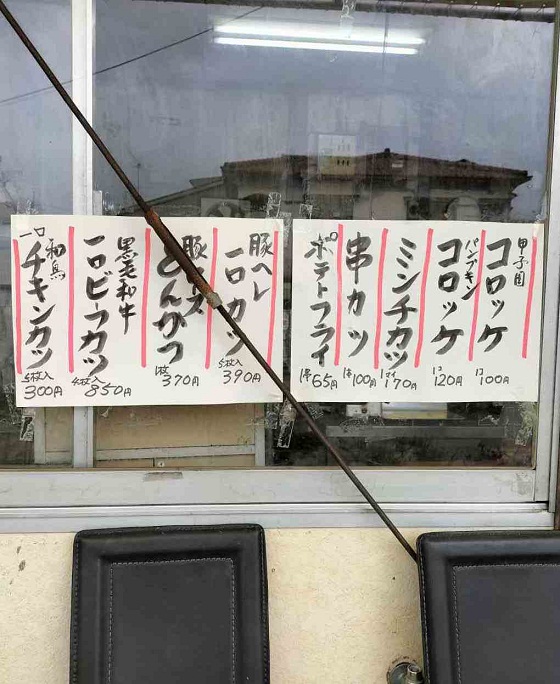 甲子園
コロッケ
1コ 100円
パンプキン
コロッケ
1コ 120円
ミンチカツ
1マイ 170円
串カツ
1本 100円
ポテトフライ
1本 65円
豚ヘレ
一口カツ
5枚入 390円
豚ロース
とんかつ
1枚 370円
黒毛和牛
一口ビフカツ
4枚入 850円
和鳥
一口チキンカツ
5枚入 300円